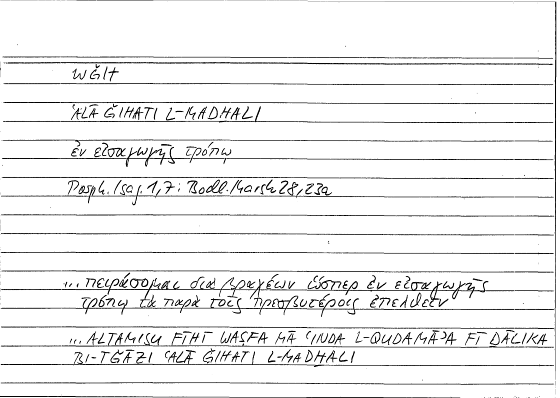 WǦIH
ʿALĀ ǦIHATI L-MADḪALI
ἐν εἰσαγωγῆς τρόπῳ
Porph. Isag. 1,7: Bodl. Marsh 28, 23a
... πειράσομαι διὰ βραχέων ὥσπερ ἐν εἰσαγωγῆς
τρόπῳ τὰ παρὰ τοῖς πρεσβυτέροις ἐπελθεῖν
... ALTAMISU FĪHI WAṢFA MĀ ʿINDA L-QUDAMĀʾA FĪ ḎĀLIKA
BI-ʾĪǦĀZI ʿALĀ ǦIHATI L-MADḪALI